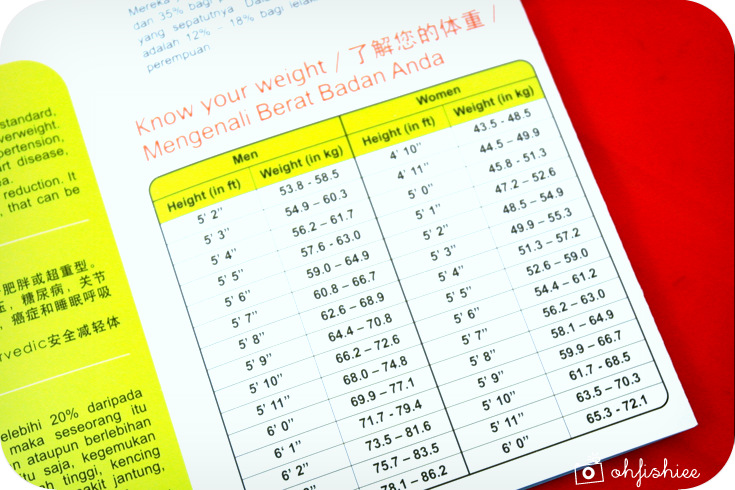 Mereka
dan 35% bagi
yang sepatutnya.
adalah 12% - 18% bagi
perempuan
standard,
verweight.
pertension,
rt disease,
reduction. It
, that can be
肥胖或超重型。
糖尿病, 关节
癌症和睡眠呼吸
rvedic安全减轻体
elebihi 20% daripada
maka seseorang itu
n ataupun berlebihan
itu saja, kegemukan
h tinggi, kencing
kit jantung,
Know your weight / 了解您的体重 /
Mengenali Berat Badan Anda
Men Women
Height (in ft) Weight (in kg) Height (in ft) Weight (in kg)
5' 2" 53.8 - 58.5 4' 10" 43.5 - 48.5
5' 3" 54.9 – 60.3 4' 11" 44.5 - 49.9
5' 4" 56.2 – 61.7 5' 0" 45.8 - 51.3
5' 5" 57.6 - 63.0 5' 1" 47.2 – 52.6
5' 6" 59.0 – 64.9 5' 2" 48.5 – 54.9
5' 7" 60.8 – 66.7 5' 3" 49.9 – 55.3
5' 8" 62.6 – 68.9 5' 4" 51.3 – 57.2
5' 9" 64.4 – 70.8 5' 5" 52.6 – 59.0
5' 10" 66.2 – 72.6 5' 6" 54.4 – 61.2
5' 11" 68.0 – 74.8 5' 7" 56.2 – 63.0
6' 0" 69.9 – 77.1 5' 8" 58.1 – 64.9
6' 1" 71.7 - 79.4 5' 9" 59.9 – 66.7
6' 2" 73.5 – 81.6 5' 10" 61.7 - 68.5
75.7 – 83.5 5' 11" 63.5 – 70.3
78.1 – 86.2 6' 0" 65.3 - 72.1
ohfishiee